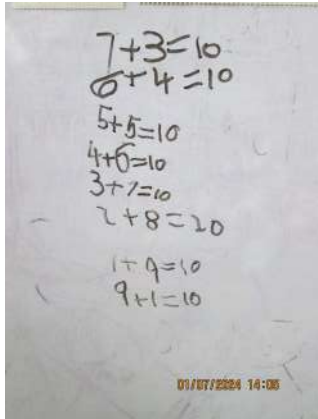 7+3=10
6+4=10
5+5=10
4+6=10
3+7=10
2+8=20
1+9=10
9+1=10
01/07/2024 14:05